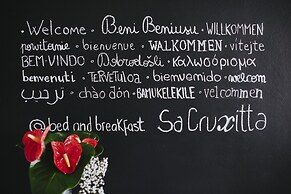 · Welcome · Beni Beniusu · WILLKOMMEN
powitanie · bienvenue · WALKOMMEN · vítejte
BEM-VINDO · Dobrodošli · καλωσόρισμα
benvenuti · TERVETULOA · bienvenido · welcom
ترحيب · chào đón · BAMUKELEKILE · velcommen
@ bed and breakfast SaCruxitta